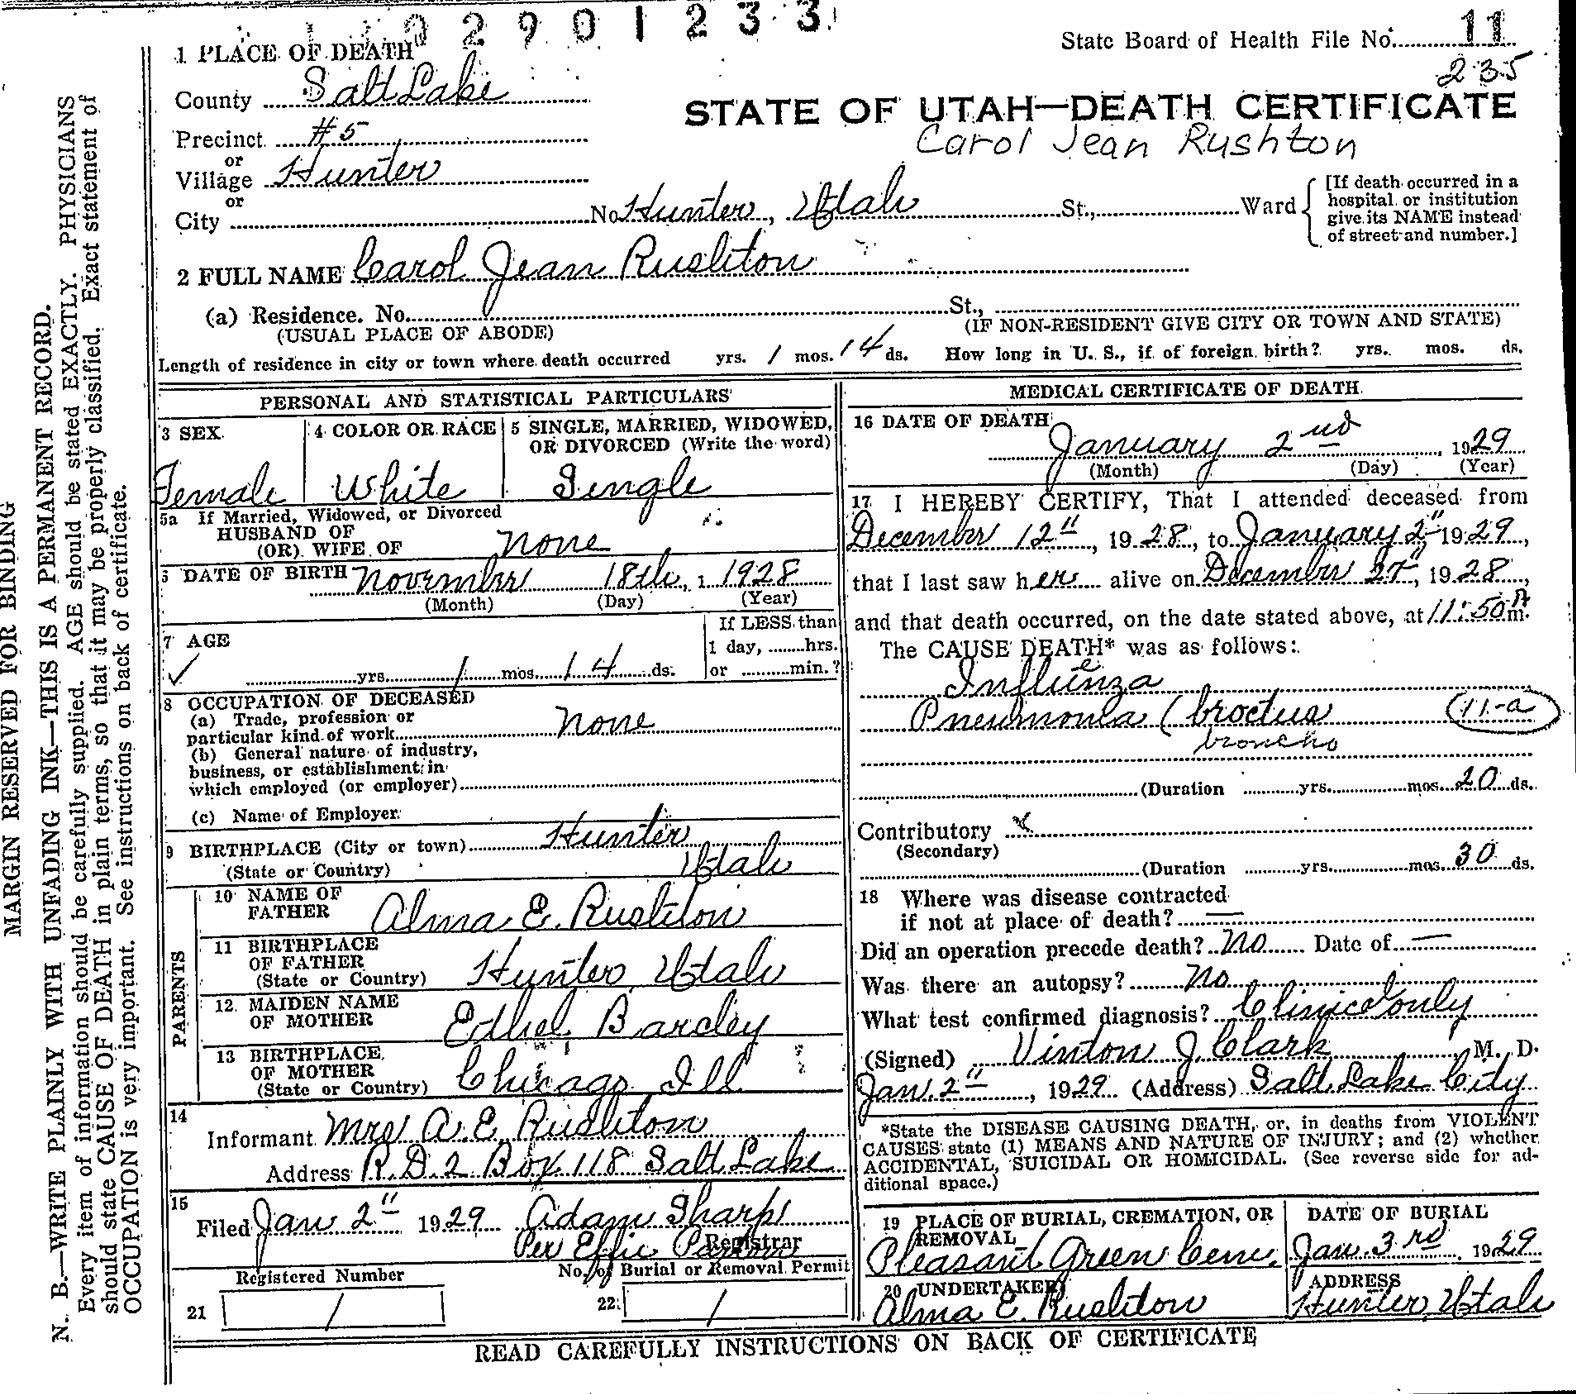 1 1 0 2 9 0 1 2 3 3
State Board of Health File No. 11
235
1 PLACE OF DEATH
County Salt Lake
STATE OF UTAH—DEATH CERTIFICATE
Carol Jean Rushton
Precinct #5
or
Village Hunter
or
City No. Hunter, Utah St., Ward
[If death occurred in a
hospital or institution
give its NAME instead
of street and number.]
2 FULL NAME Carol Jean Rushton
(a) Residence. No. St.,
(USUAL PLACE OF ABODE) (IF NON-RESIDENT GIVE CITY OR TOWN AND STATE)
Length of residence in city or town where death occurred yrs. 1 mos. 14 ds. How long in U. S., if of foreign birth? yrs. mos. ds.
PERSONAL AND STATISTICAL PARTICULARS
3 SEX
Female
4 COLOR OR RACE
White
5 SINGLE, MARRIED, WIDOWED,
OR DIVORCED (Write the word)
Single
5a If Married, Widowed, or Divorced
HUSBAND OF
(OR) WIFE OF none
6 DATE OF BIRTH November 18th, 1928
(Month) (Day) (Year)
7 AGE
✓ yrs. 1 mos. 14 ds.
If LESS than
1 day, hrs.
or min.?
8 OCCUPATION OF DECEASED
(a) Trade, profession or
particular kind of work none
(b) General nature of industry,
business, or establishment in
which employed (or employer)
(c) Name of Employer
9 BIRTHPLACE (City or town) Hunter
(State or Country) Utah
PARENTS
10 NAME OF
FATHER Alma E. Rushton
11 BIRTHPLACE
OF FATHER
(State or Country) Hunter, Utah
12 MAIDEN NAME
OF MOTHER Ethel Barcley
13 BIRTHPLACE
OF MOTHER
(State or Country) Chicago Ill
14
Informant Mrs A. E. Rushton
Address R.D.2 Box 118 Salt Lake
15
Filed Jan 2" 1929 Adam Sharp
Per Effie
Registrar
Registered Number
No. of Burial or Removal Permit
21 1
22 1
MEDICAL CERTIFICATE OF DEATH
16 DATE OF DEATH
January 2nd, 1929
(Month) (Day) (Year)
17 I HEREBY CERTIFY, That I attended deceased from
December 12", 1928, to January 2" 1929,
that I last saw her alive on December 27", 1928,
and that death occurred, on the date stated above, at 11:50 m.
The CAUSE DEATH* was as follows:
Influenza
Pneumonia (
11-a
broncho
(Duration yrs. mos. 20 ds.
Contributory x
(Secondary)
(Duration yrs. mos. 30 ds.
18 Where was disease contracted
if not at place of death? —
Did an operation precede death? No Date of —
Was there an autopsy? No
What test confirmed diagnosis? Clinical only
(Signed) Vinton J. Clark, M. D.
Jan. 2", 1929 (Address) Salt Lake City
*State the DISEASE CAUSING DEATH, or, in deaths from VIOLENT
CAUSES state (1) MEANS AND NATURE OF INJURY; and (2) whether
ACCIDENTAL, SUICIDAL OR HOMICIDAL. (See reverse side for ad-
ditional space.)
19 PLACE OF BURIAL, CREMATION, OR
REMOVAL
Pleasant Green Cem.
DATE OF BURIAL
Jan. 3rd, 1929
20 UNDERTAKER
Alma E. Rushton
ADDRESS
Hunter, Utah
READ CAREFULLY INSTRUCTIONS ON BACK OF CERTIFICATE
MARGIN RESERVED FOR BINDING
N. B.—WRITE PLAINLY WITH UNFADING INK—THIS IS A PERMANENT RECORD.
Every item of information should be carefully supplied. AGE should be stated EXACTLY. PHYSICIANS
should state CAUSE OF DEATH in plain terms, so that it may be properly classified. Exact statement of
OCCUPATION is very important. See instructions on back of certificate.